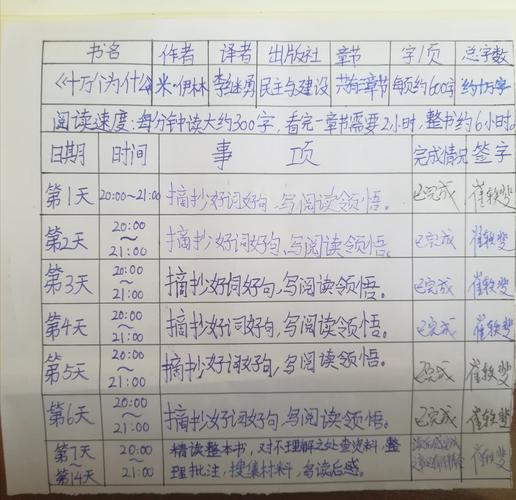 书名 作者 译者 出版社 章节 字/页 总字数
《十万个为什么》 米·伊林 李继勇 民主与建设 共有三章节 每页约600字 约十万字
阅读速度:每分钟读大约300字,看完一章节需要2小时,整书约6小时。
日期 时间 事项 完成情况 签字
第1天 20:00~21:00 摘抄好词好句,写阅读领悟。 已完成 崔轶斐
第2天 20:00~21:00 摘抄好词好句,写阅读领悟。 已完成 崔轶斐
第3天 20:00~21:00 摘抄好词好句,写阅读领悟。 已完成 崔轶斐
第4天 20:00~21:00 摘抄好词好句,写阅读领悟。 已完成 崔轶斐
第5天 20:00~21:00 摘抄好词好句,写阅读领悟。 已完成 崔轶斐
第6天 20:00~21:00 摘抄好词好句,写阅读领悟。 已完成 崔轶斐
第7天~第14天 20:00~21:00 精读整本书,对不理解之处查资料,整
理批注,搜集材料,写读后感。 崔轶斐